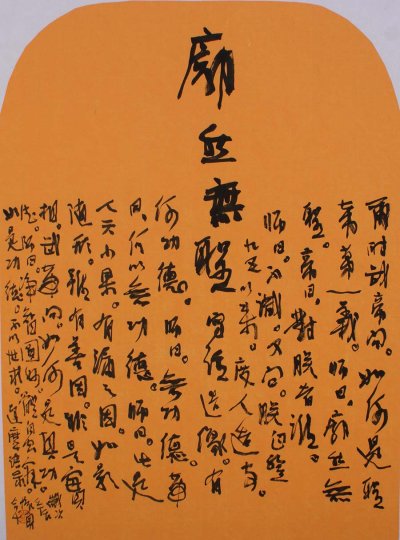 廓然無聖
爾時武帝問。如何是聖
帝第一義。師曰。廓然無
聖。帝曰。對朕者誰。
師曰。不識。又問。朕自登
九五以來。度人造寺。
寫經造像。有
何功德。師曰。無功德。帝
曰。何以無功德。師曰。此是
人天小果。有漏之因。如影
隨形。雖有善因。非是實
相。武帝問。如何是真功
德。師曰。淨智圓妙。體自空寂。
如是功德。不以世求。達摩語錄